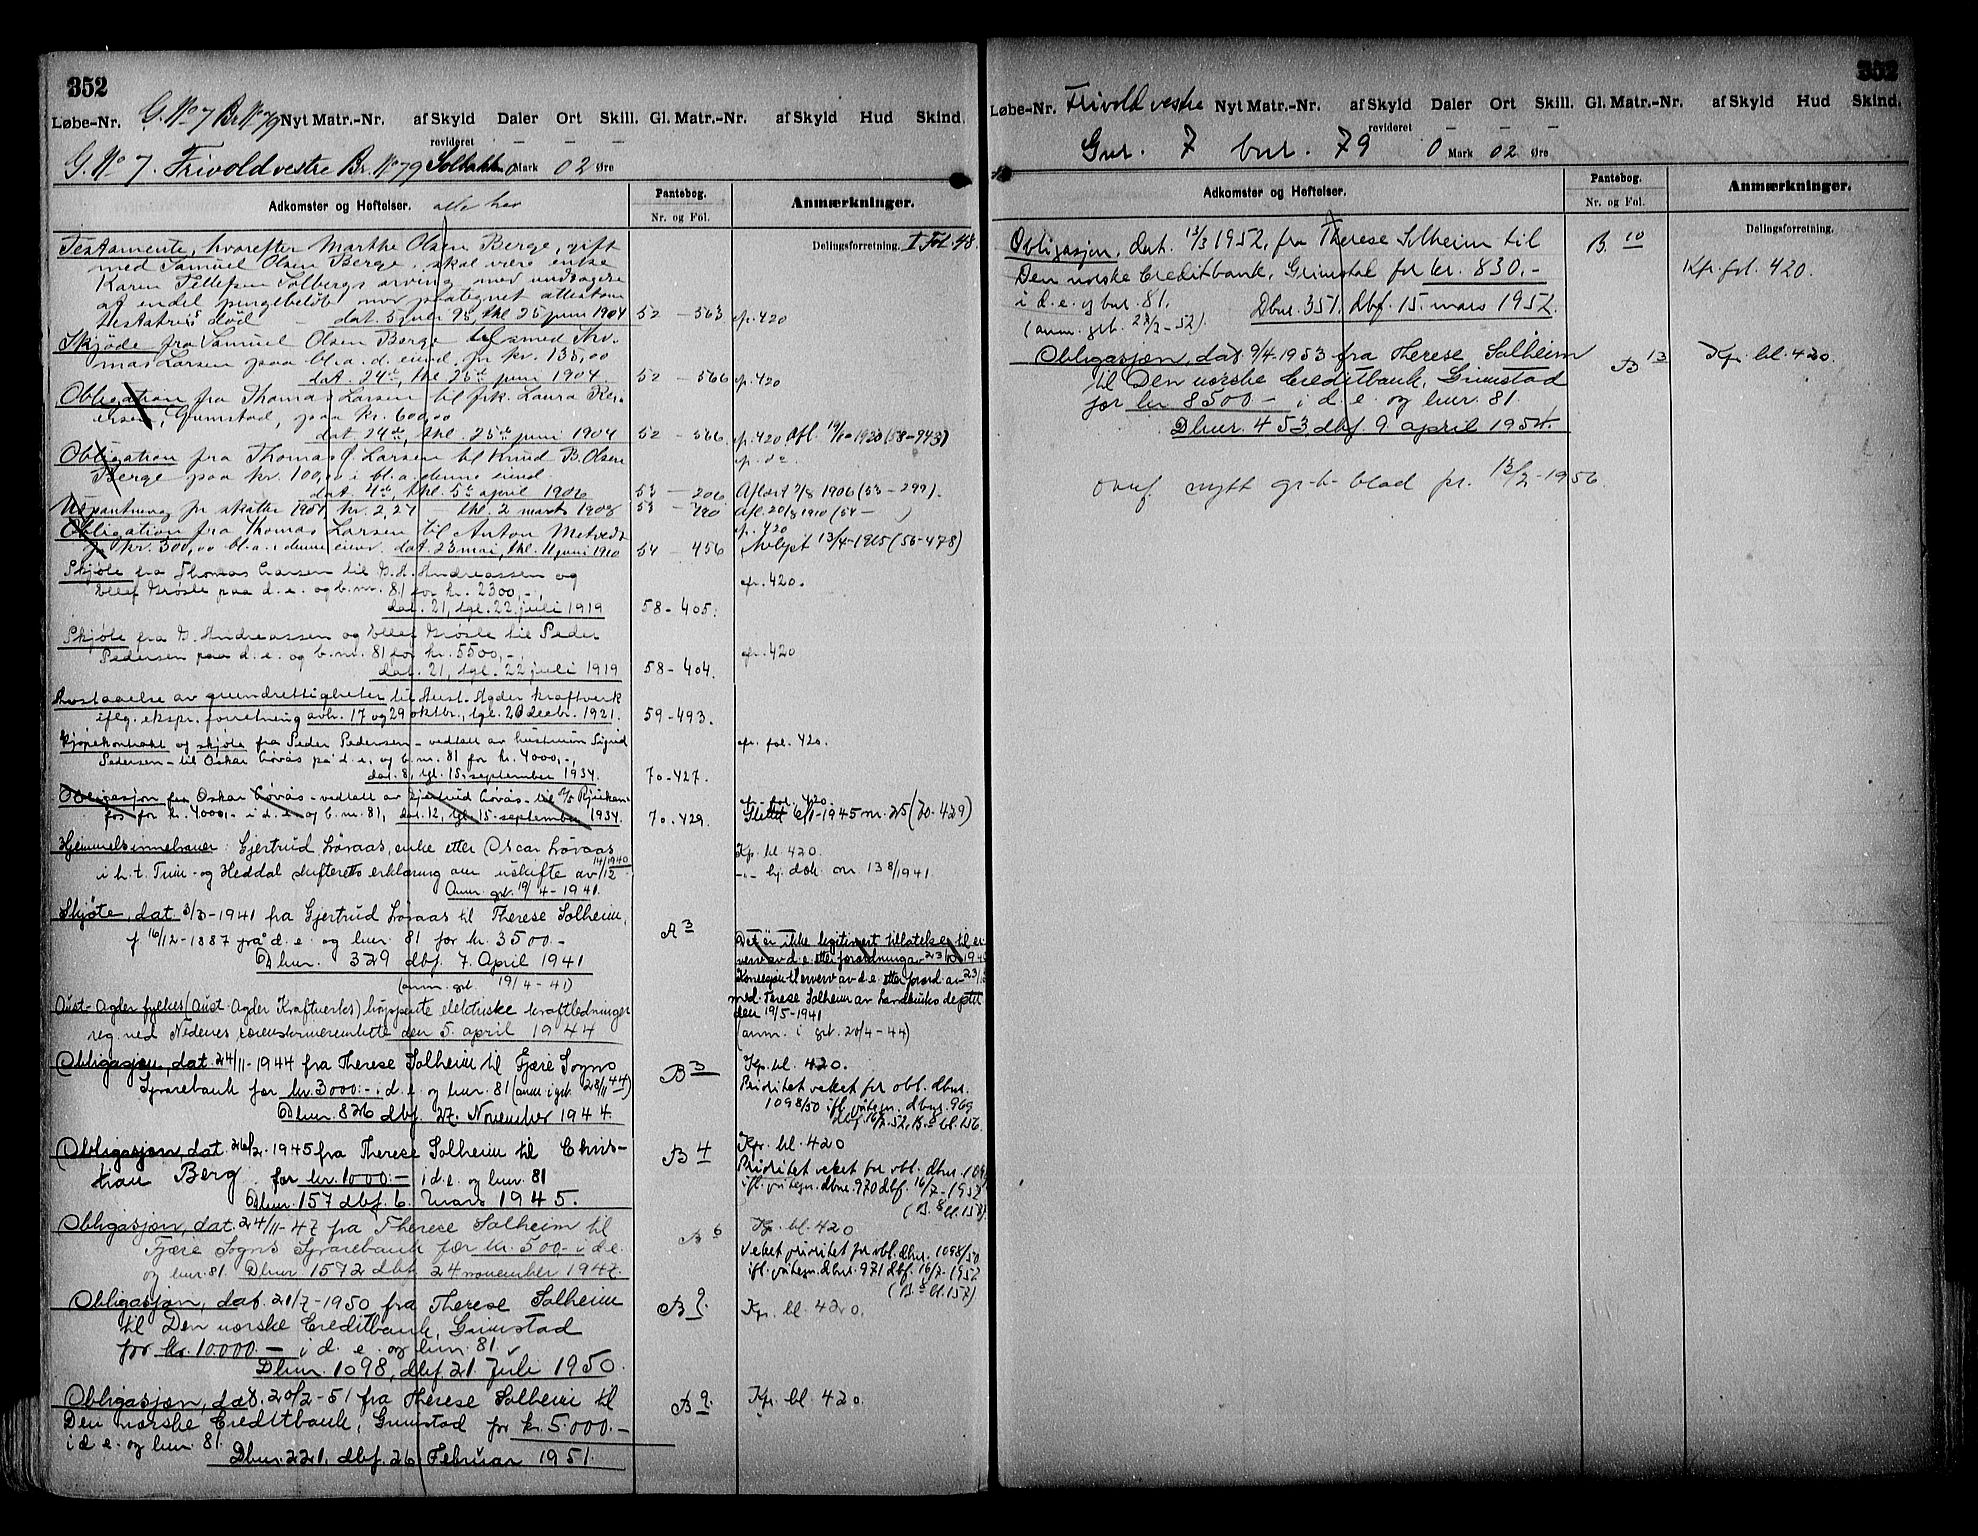 352
Løbe-Nr. G. No 7 Br. No 79 Nyt Matr.-Nr. af Skyld Daler Ort Skill. Gl. Matr.-Nr. af Skyld Hud Skind.
revideret
G. No 7. Frivold vestre Br. No 79 Solbakken 0 Mark 02 Øre
Adkomster og Heftelser.
Pantebog.
Nr. og Fol.
Anmærkninger.
Delingsforretning. I Fol. 48.
Testamente, hvorefter Marthe Olsen Berge, gift
med Samuel Olsen Berge, skal være
Karen Tellefsen Solbergs arving med undtagelse
af endel pengebeløb mor paategnet attest om
testatrix død dat. 5 95, thl. 25 juni 1904 52 — 563 cfr. 420
Skjøde fra Samuel Olsen Berge til smed Tho-
mas Larsen paa bl. a. d. eiend. for kr. 135,00
dat. 24de, thl. 25de juni 1904. 52 — 566 cfr. 420
Obligation fra Thomas Larsen til frk. Laura
Grimstad, paa kr. 600,00
dat. 24de, thl. 25de juni 1904 52 — 566 cfr. 420 Afl. 1920 (58-943)
Obligation fra Thomas Larsen til Knud B. Olsen
Berge paa kr. 100,00 i bl. a. denne eiend
dat. 4de, thl. 5te april 1906 53 — 206 Aflæst 1906 (53-299).
Udpantning for skatter 1907 kr. 2,27 — thl. 2 marts 1908 53 — 790 Afl. 20/8 1910 (54 — )
Obligation fra Thomas Larsen til Anton Metveds
for kr. 300,00 bl. a. i denne eiend. dat. 23 mai, thl. 11 juni 1910 54 — 456 cfr. 420 Avlyst 13/4-1915 (56-478)
Skjøte fra Thomas Larsen til Andreassen og
Ellef Grøsle paa d. e. og b.nr. 81 for kr. 2300,-,
dat. 21, tgl. 22 juli 1919 58-405. cfr. 420.
Skjøte fra Andreassen og Ellef Grøsle til Peder
Pedersen paa d. e. og b.nr. 81 for kr. 5500,-,
dat. 21, tgl. 22 juli 1919 58-404. cfr. 420
Avstaaelse av grundrettigheter til Aust-Agder kraftverk
iflg. ekspr. forretning avh. 17 og 29 oktbr., tgl. 20 decbr. 1921. 59-493.
Kjøpekontrakt og skjøte fra Peder Pedersen - vedtatt av hustruen Sigrid
Pedersen - til Oskar Løvås på d. e. og b.nr. 81 for kr. 4000,-,
dat. 8, tgl. 15. september 1934. 70-427. cfr. fol. 420.
Obligasjon fra Oskar Løvås - vedtatt av Gjertrud Løvås - til A/S Rjukan-
fos for kr. 4000,- i d. e. og b.nr. 81, dat. 12, tgl. 15. september 1934. 70-429. cfr. fol. 420. Slettet 6/1-1945 nr. 25 (70-429)
Hjemmelsinnehaver: Gjertrud Løvaas, enke etter Oscar Løvaas
i h. t. Tinn- og Heddal skifteretts erklæring om uskifte av 14/12 1940
Anm. grb. 19/4-1941. Kfr. bl. 420. -"- hj. dok. nr. 138/1941.
Skjøte, dat. 3/3-1941 fra Gjertrud Løvaas til Therese Solheim,
f. 16/12-1887 på d. e. og bnr. 81 for kr. 3500.-
Dbnr. 329 dbf. 7. April 1941 A 3
(anm. grb. 19/4-41)
Det er ikke legitimert tillatelse til er-
verv av d. e. etter forordning av 23/10 1940
Konsesjon til erverv av d. e. etter forord. av 23/10
med. Terese Solheim av Landbruks deptet
den 19/5-1941
(anm. i grb. 20/4-44)
Aust-Agder fylkes (Aust-Agder Kraftverks) høyspente elektriske kraftledninger
reg. ved Nedenes sorenskriverembete den 5. april 1944
Obligasjon, dat. 24/11-1944 fra Therese Solheim til Fjære Sogns
Sparebank for kr. 3000:- i d. e. og bnr. 81 (anm. i grb. 28/11 44)
Dbnr. 826 dbf. 27. November 1944. B 3
Kfr. bl. 420.
Prioritet veket for obl. dbnr.
1098/50 ifl. påtegn. dbnr. 969
dbf. 16/7-52, B. 8 bl. 156.
Obligasjon, dat. 26/2. 1945 fra Therese Solheim til Chris-
tian Berg for kr. 1000:- i d. e. og bnr. 81
Dbnr. 157 dbf. 6. Mars 1945. B 4
Kfr. bl. 420
Prioritet veket for obl. dbnr. 1098
ifl. påtegn. dbnr. 970 dbf. 16/7-1952
(B. 8 bl. 158).
Obligasjon, dat. 24/11-47 fra Therese Solheim til
Fjære Sogns Sparebank for kr. 500,- i d. e.
og bnr. 81. Dbnr 1572 dbf. 24 november 1947. B 6
Kfr. bl. 420
Veket prioritet for obl. dbnr. 1098/50
ifl. påtegn. dbnr. 971 dbf. 16/7-1952
(B. 8 bl. 157)
Obligasjon, dat. 20/7-1950 fra Therese Solheim
til Den norske Creditbank, Grimstad
for kr. 10.000.- i d. e. og bnr. 81.
Dbnr. 1098, dbf. 21. Juli 1950. B 9. Kfr. bl. 420.
Obligasjon, dat. 20/2-51 fra Therese Solheim til
Den norske Creditbank, Grimstad for kr. 5.000.-
i d. e. og bnr. 81.
Dbnr. 221, dbf. 26. Februar 1951. B 9. Kfr. bl. 420.
352
Løbe-Nr. Frivold vestre Nyt Matr.-Nr. af Skyld Daler Ort Skill. Gl. Matr.-Nr. af Skyld Hud Skind.
revideret
Gnr. 7 bnr. 79 0 Mark 02 Øre
Adkomster og Heftelser.
Pantebog.
Nr. og Fol.
Anmærkninger.
Delingsforretning.
Obligasjon, dat. 13/3 1952, fra Therese Solheim til
Den norske Creditbank, Grimstad for kr. 830,-
i d. e. og bnr. 81.
Dbnr. 351. dbf. 15. mars 1952. B. 10 Kfr. fol. 420.
(anm. grb. -52).
Obligasjon, dat. 9/4 1953 fra Therese Solheim
til Den norske Creditbank, Grimstad
for kr 8500- i d. e. og bnr. 81.
Dbnr. 453, dbf. 9. april 1954. B 13 Kfr. bl. 420.
overf. nytt gr.b. blad pr. 13/2-1956.